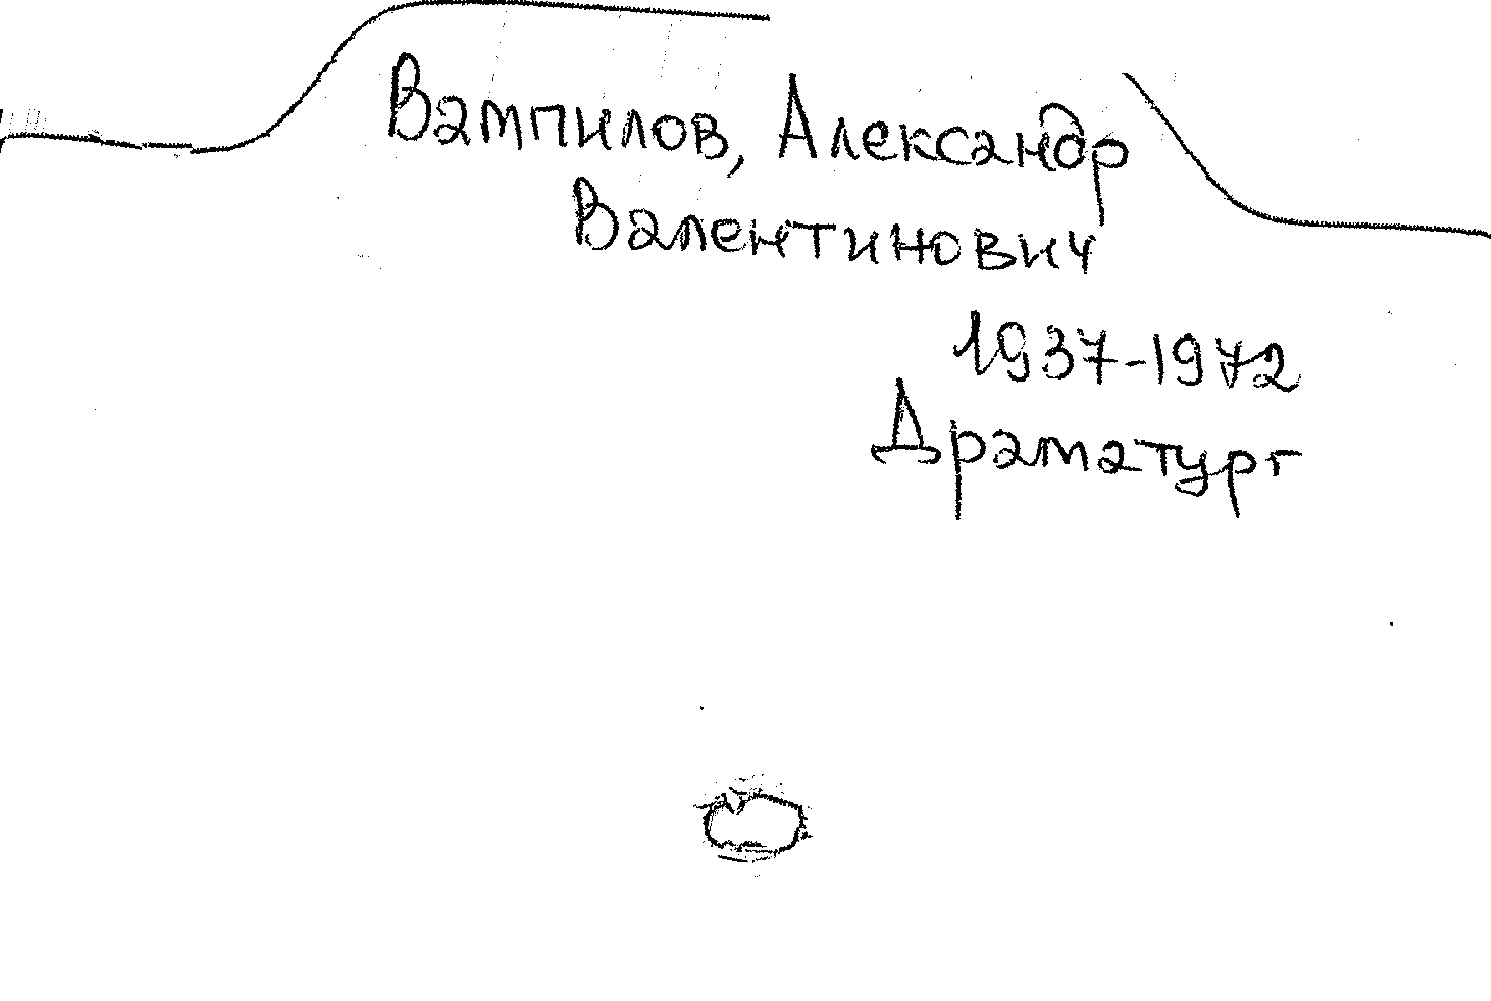 Вампилов, Александр
Валентинович
1937-1972
Драматург